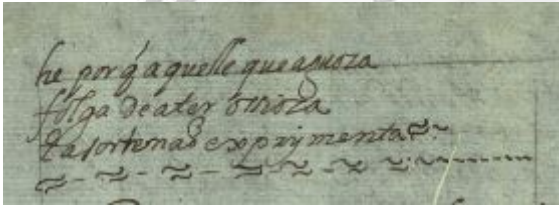 he porq̃ aquelle que agoza
folga de a ter ociosa
& a sorte naõ exprimenta